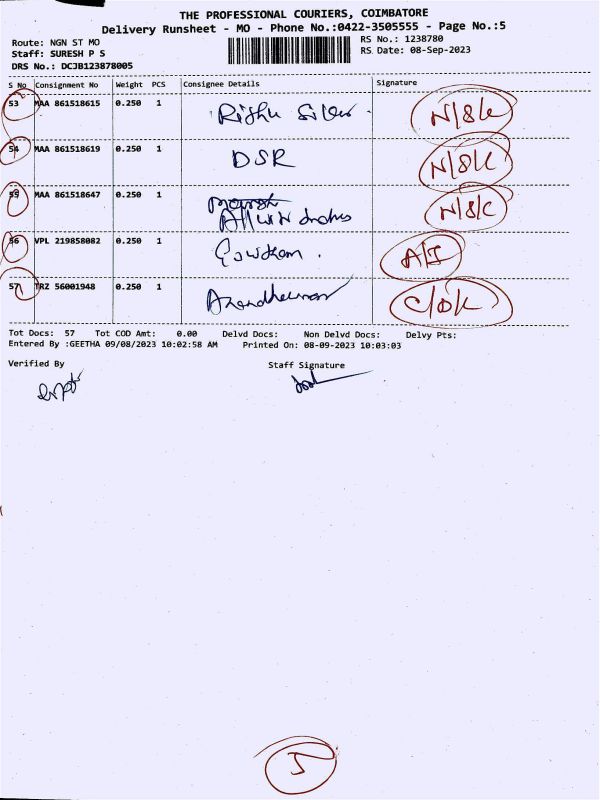 THE PROFESSIONAL COURIERS, COIMBATORE
Delivery Runsheet - MO - Phone No.:0422-3505555 - Page No.:5
Route: NGN ST MO RS No.: 1238780
Staff: SURESH P S RS Date: 08-Sep-2023
DRS No.: DCJB123878005
S No Consignment No Weight PCS Consignee Details Signature
53 MAA 861518615 0.250 1 N/S/C
54 MAA 861518619 0.250 1 DSR N/S/C
55 MAA 861518647 0.250 1 N/S/C
56 VPL 219858082 0.250 1 Gowtham. A/I
57 TRZ 56001948 0.250 1
Tot Docs: 57 Tot COD Amt: 0.00 Delvd Docs: Non Delvd Docs: Delvy Pts:
Entered By :GEETHA 09/08/2023 10:02:58 AM Printed On: 08-09-2023 10:03:03
Verified By Staff Signature
5